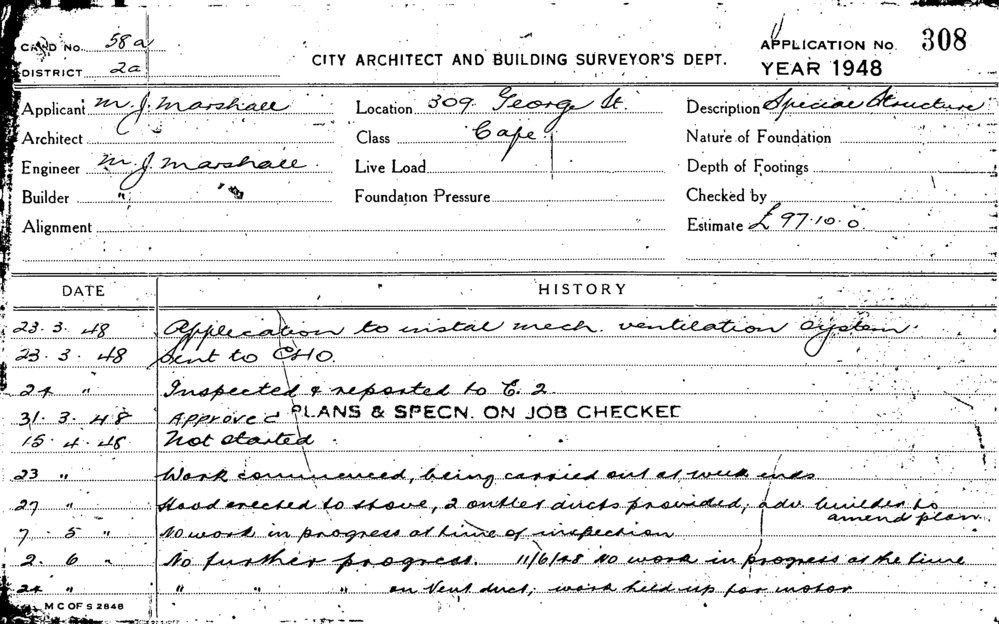 CARD No. 58a
DISTRICT 2a
CITY ARCHITECT AND BUILDING SURVEYOR'S DEPT.
APPLICATION No. 308
YEAR 1948
Applicant M. J. Marshall
Location 309 George St.
Description Special Structure
Architect
Class Cafe
Nature of Foundation
Engineer M. J. Marshall
Live Load
Depth of Footings
Builder "
Foundation Pressure
Checked by
Alignment
Estimate £97.10.0
DATE HISTORY
23.3.48 Application to instal mech. ventilation system.
23.3.48 Sent to CHO.
24 " Inspected & reported to E.2
31.3.48 Approved PLANS & SPECN. ON JOB CHECKED
15.4.48 Not started.
23 " Work commenced, being carried out at week ends
27 " Hood erected to stove, 2 outlet ducts provided, adv. builder to amend plan.
7.5 " No work in progress at time of inspection
2.6 " No further progress. 11/6/48 No work in progress at the time
24 " " " " on Vent duct, work held up for motor
M C OF S 2848